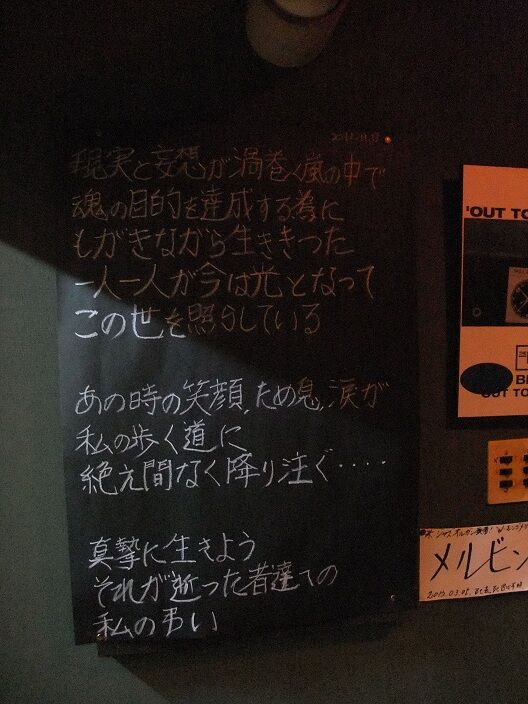 現実と妄想が渦巻く嵐の中で
魂の目的を達成する為に
もがきながら生ききった
一人一人が今は光となって
この世を照らしている
あの時の笑顔、ため息、涙が
私の歩く道に
絶え間なく降り注ぐ・・・・
真摯に生きよう
それが逝った者達への
私の弔い
'OUT TO
OUT TO
メルビン